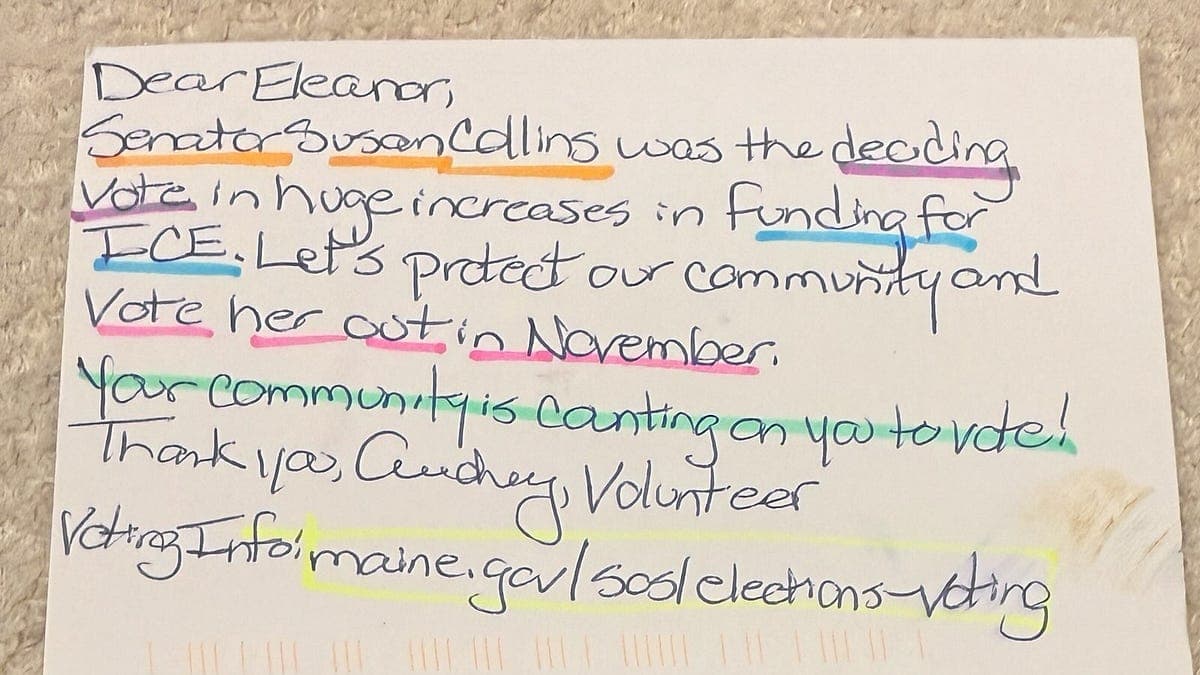 Dear Eleanor,
Senator Susan Collins was the deciding
vote in huge increases in funding for
ICE. Let's protect our community and
Vote her out in November.
Your community is counting on you to vote!
Thank you, Audrey, Volunteer
Voting Info: maine.gov/sos/elections-voting